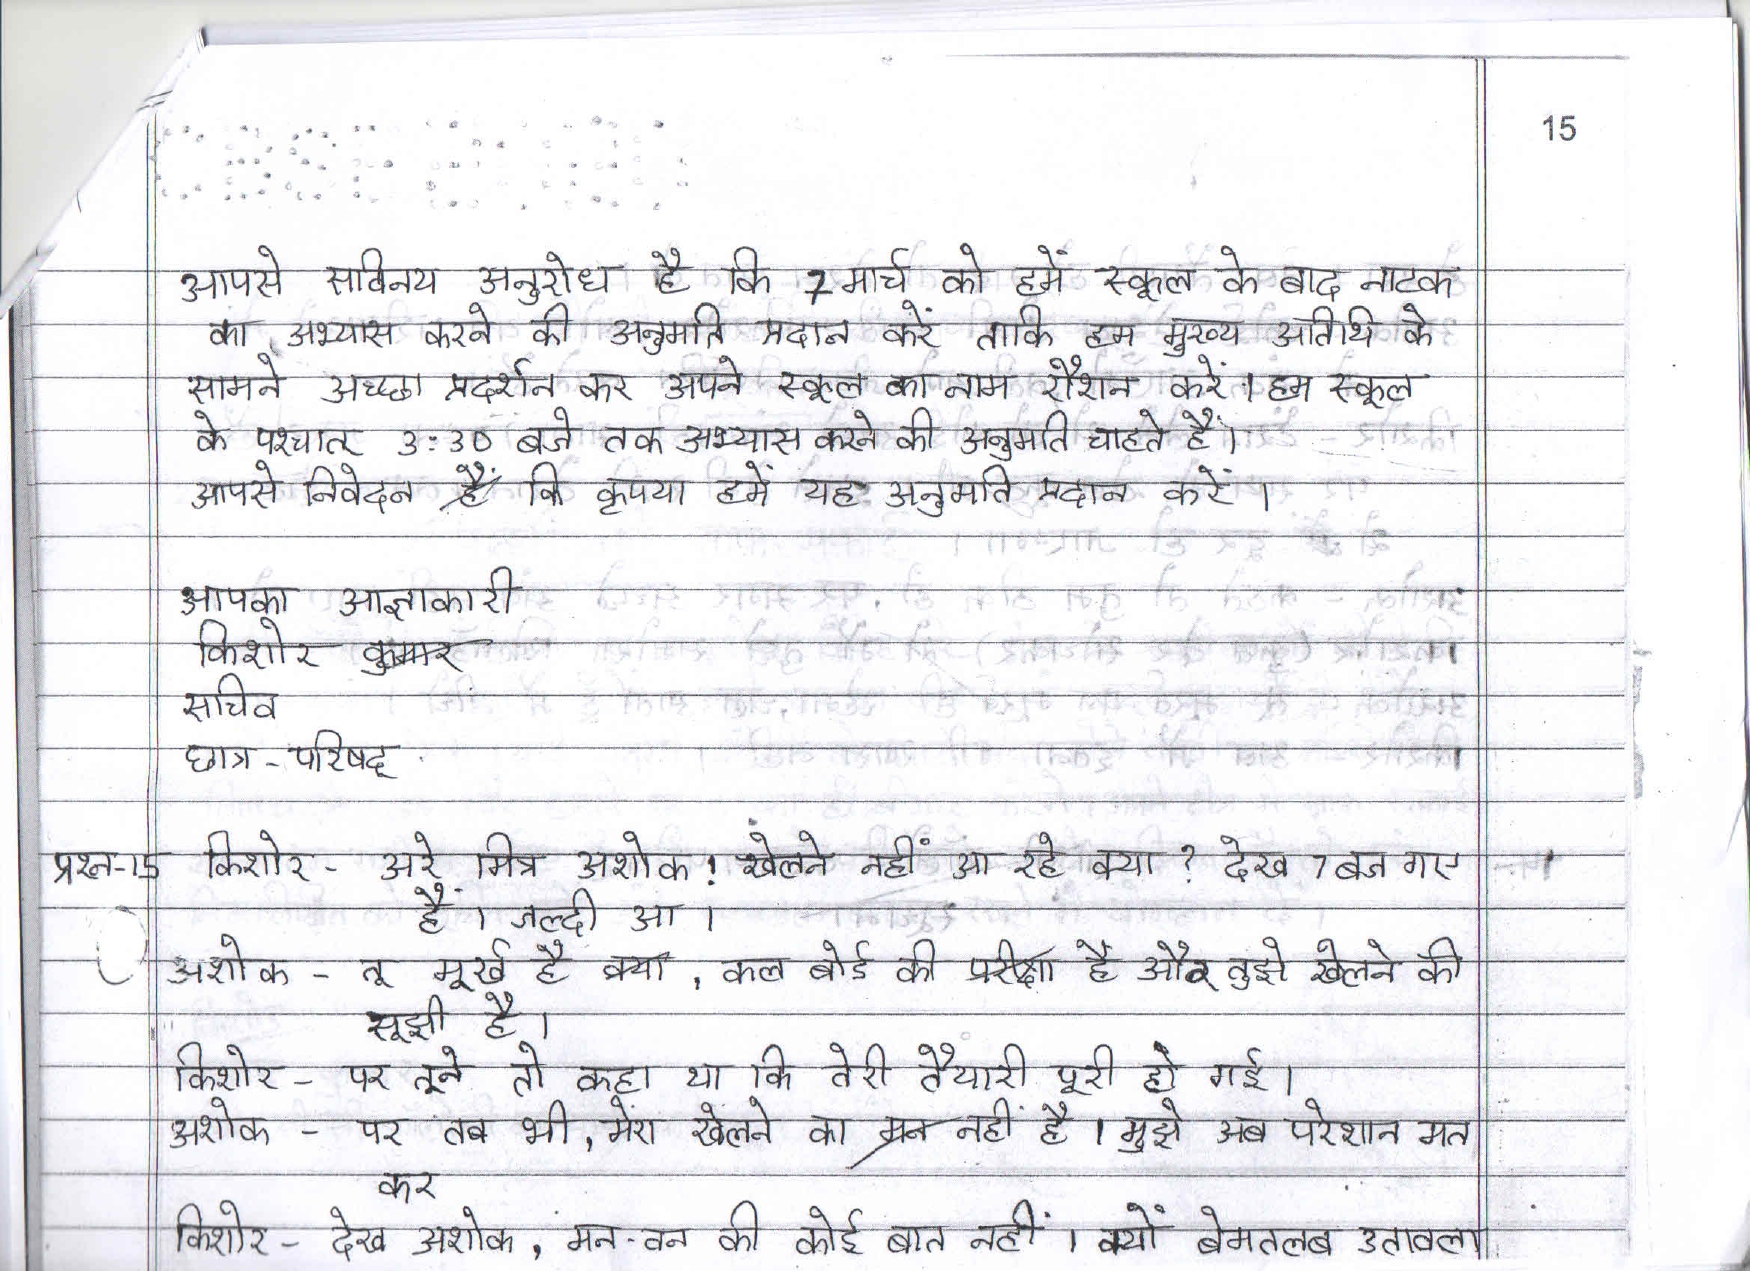 15
आपसे सविनय अनुरोध है कि 7 मार्च को हमें स्कूल के बाद नाटक
का अभ्यास करने की अनुमति प्रदान करें ताकि हम मुख्य अतिथि के
सामने अच्छा प्रदर्शन कर अपने स्कूल का नाम रौशन करें। हम स्कूल
के पश्चात् 3:30 बजे तक अभ्यास करने की अनुमति चाहते हैं।
आपसे निवेदन है कि कृपया हमें यह अनुमति प्रदान करें।
आपका आज्ञाकारी
किशोर कुमार
सचिव
छात्र-परिषद्
प्रश्न-15 किशोर - अरे मित्र अशोक! खेलने नहीं आ रहे क्या? देख 7 बज गए
हैं। जल्दी आ।
अशोक - तू मूर्ख है क्या, कल बोर्ड की परीक्षा है और तुझे खेलने की
सूझी है।
किशोर - पर तूने तो कहा था कि तेरी तैयारी पूरी हो गई।
अशोक - पर तब भी, मेरा खेलने का मन नहीं है। मुझे अब परेशान मत
कर
किशोर - देख अशोक, मन-वन की कोई बात नहीं। क्यों बेमतलब उतावला